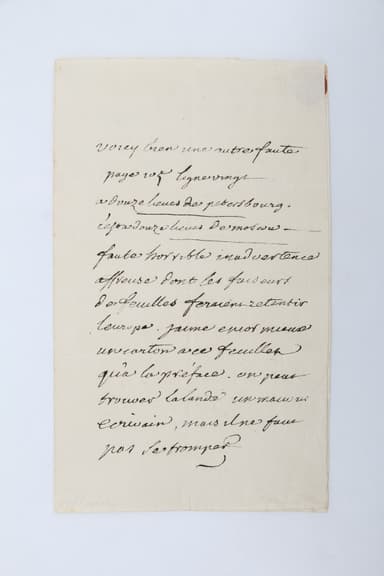 voicy bien une autre faute
page ligne vingt
a douze lieues de petersbourg.
c'est a douze lieues de moscou
faute horrible inadvertence
affreuse dont les faiseurs
de feuilles feraient retentir
l'europe. jaime encor mieux
un carton a ce feuillet
qu'a la préface. on peut
trouver un mauvais
ecrivain, mais il ne faut
pas se tromper